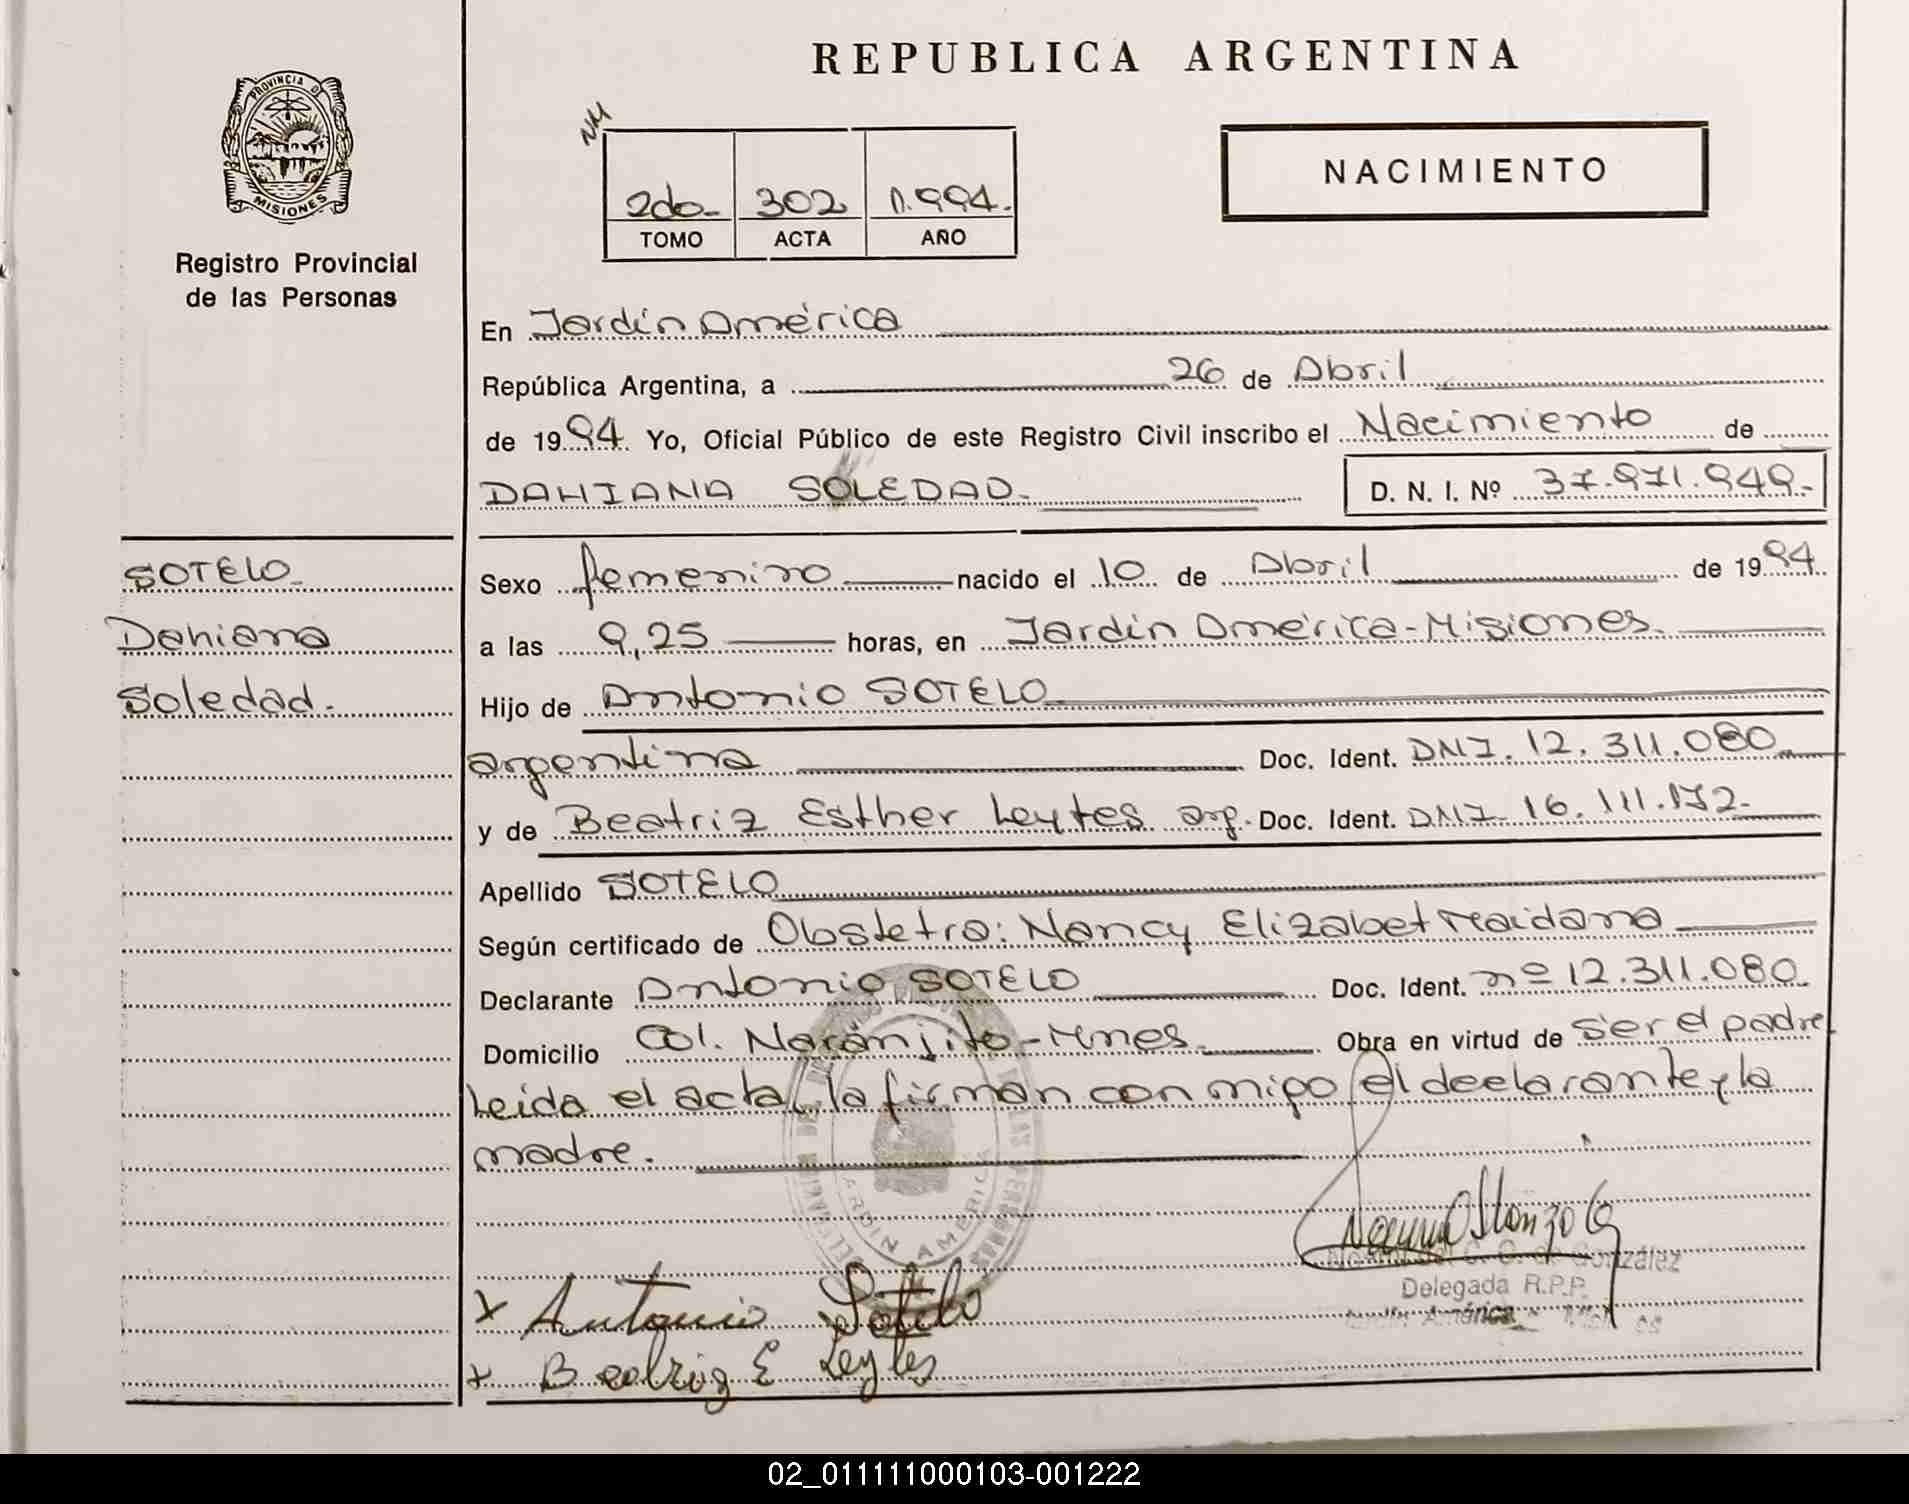 REPUBLICA ARGENTINA
PROVINCIA DE
MISIONES
Registro Provincial
de las Personas
NACIMIENTO
2do- 302 1.994.
TOMO ACTA AÑO
En Jardín América
República Argentina, a 26 de Abril
de 1994. Yo, Oficial Público de este Registro Civil inscribo el Nacimiento de
DAHIANA SOLEDAD.
D. N. I. Nº 37.971.949.-
SOTELO
Dahiana
Soledad.
Sexo femenino nacido el 10 de Abril de 1994
a las 9,25 horas, en Jardín América-Misiones.
Hijo de Antonio SOTELO
argentina Doc. Ident. DNI. 12.311.080
y de Beatriz Esther Leytes arg. Doc. Ident. DNI. 16.111.172.
Apellido SOTELO
Según certificado de Obstetra: Nancy Elizabet Maidana
Declarante Antonio SOTELO Doc. Ident. nº 12.311.080.
Domicilio Col. Naranjito-Mnes. Obra en virtud de ser el padre
Leida el acta, la firman conmigo el declarante y la
madre.
JARDIN AMERICA
González
Delegada R.P.P.
América
x Antonio Sotelo
x Beatriz E Leytes
02_011111000103-001222